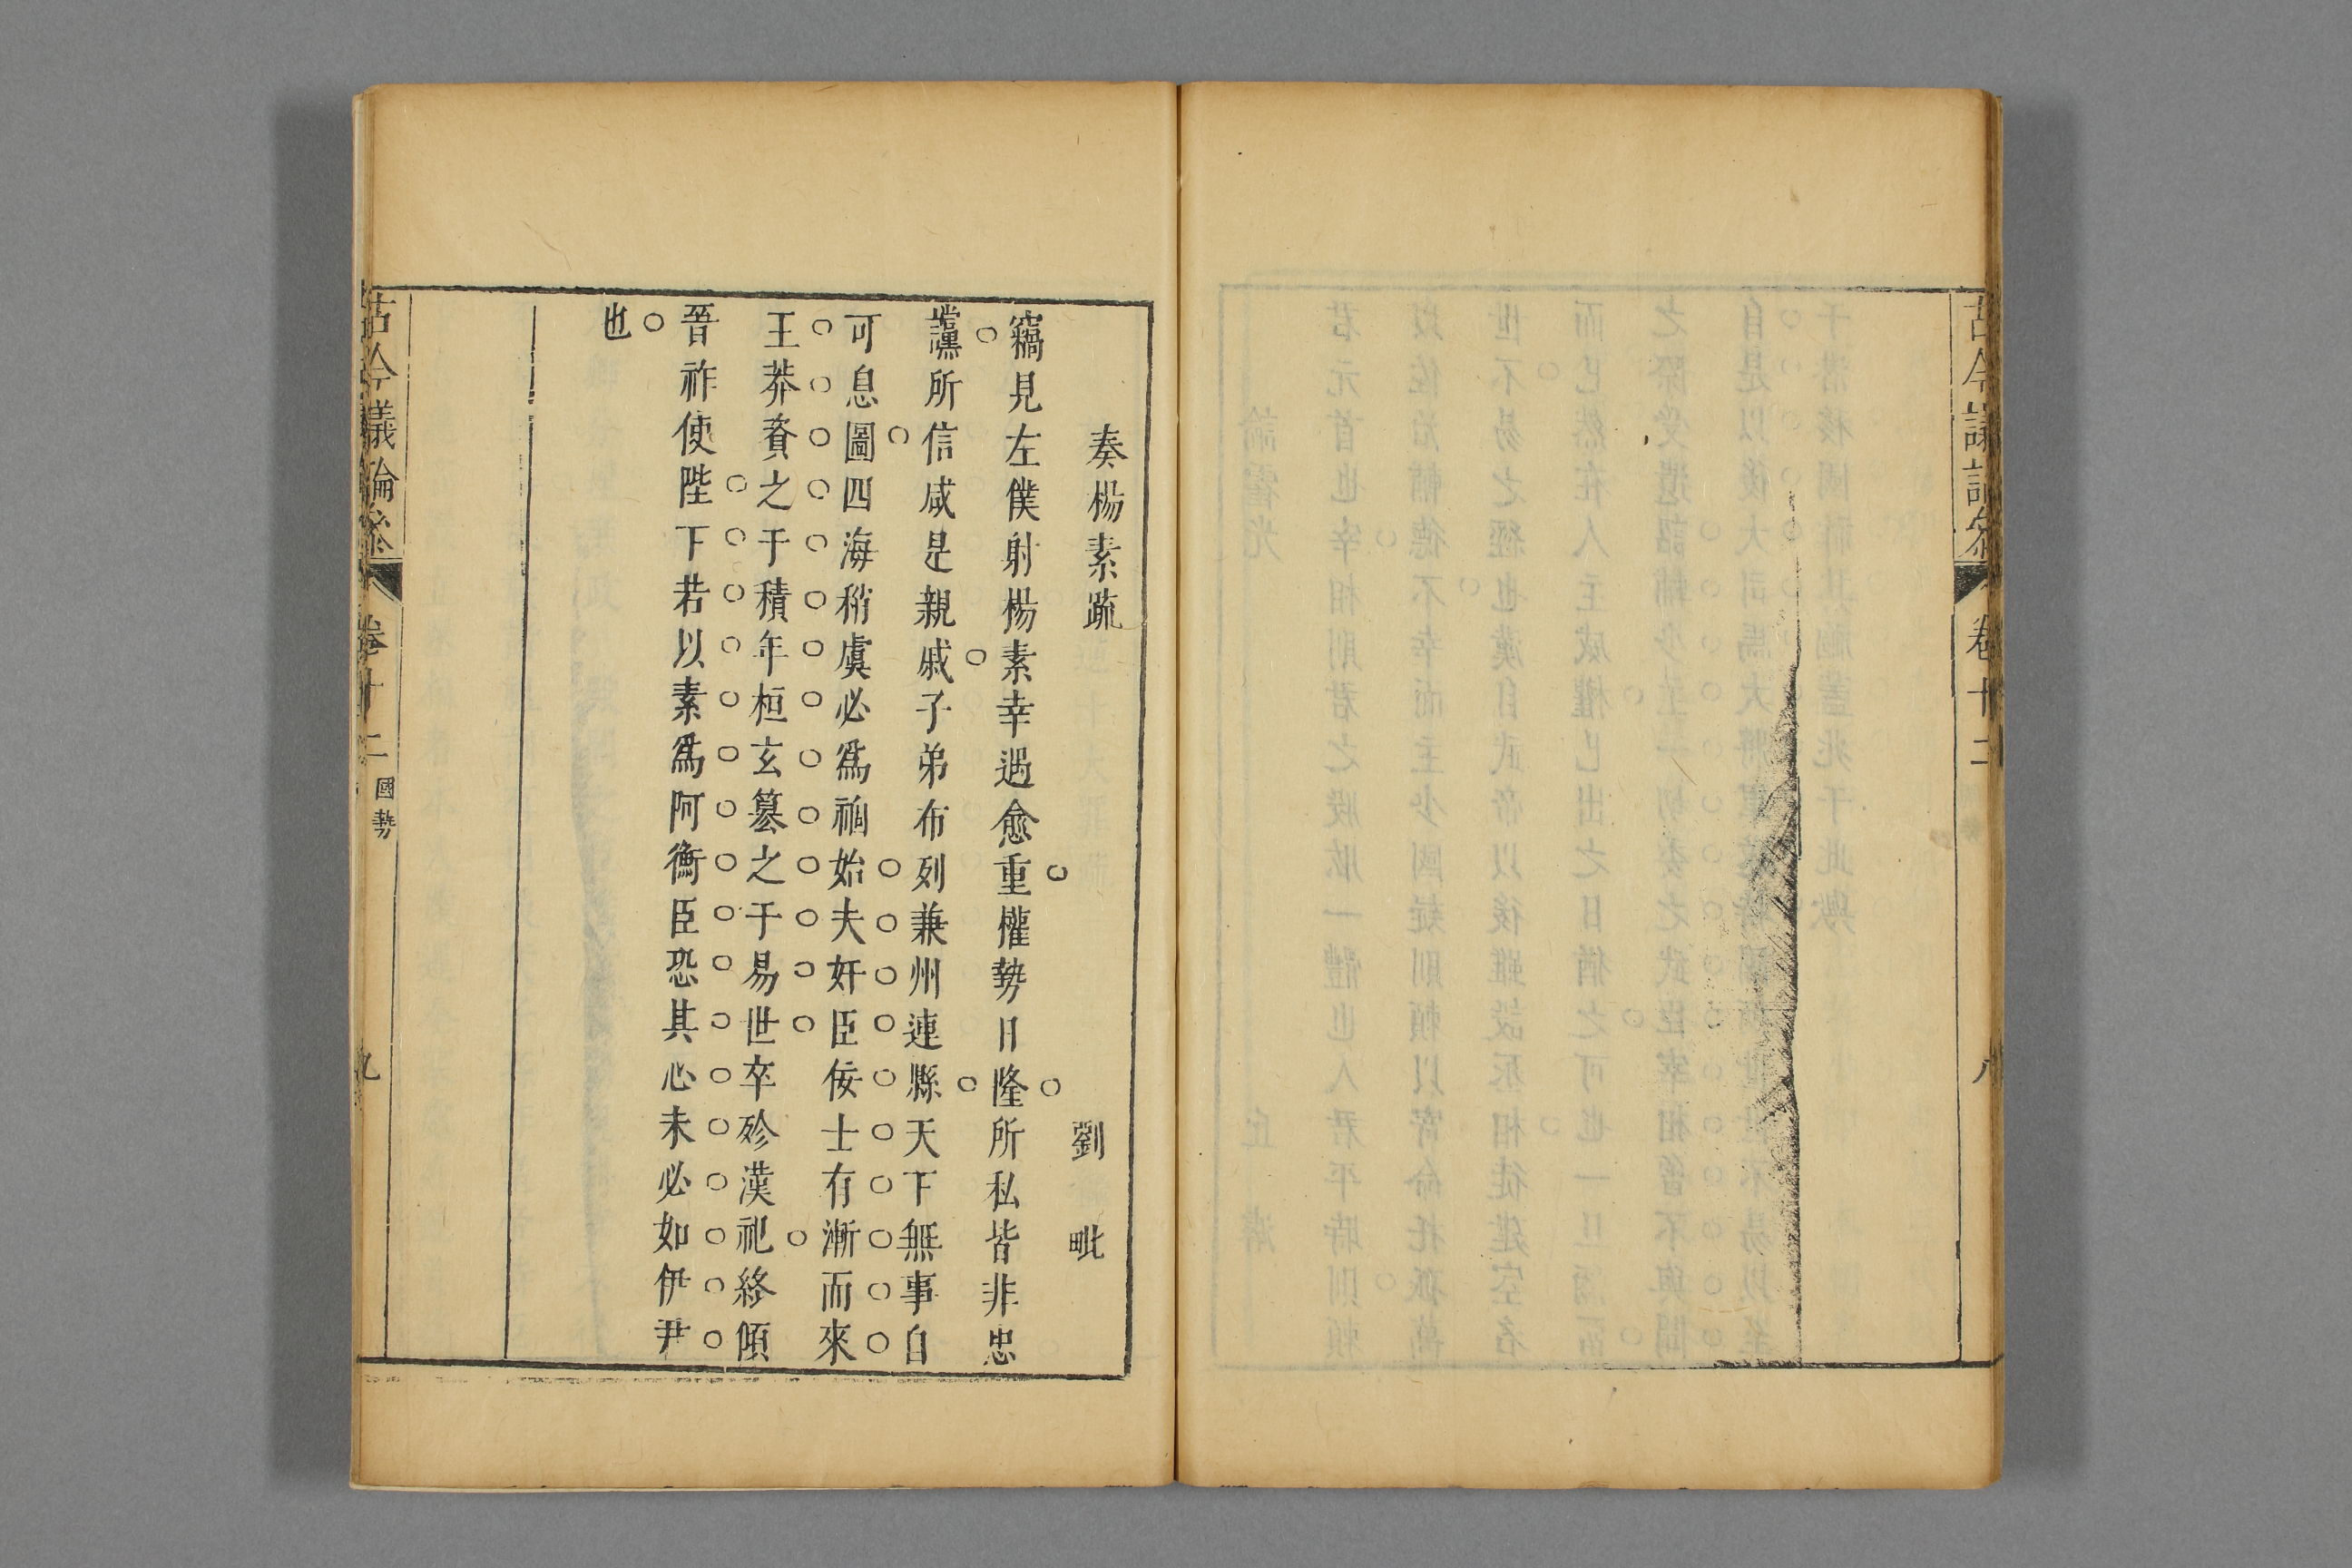 古今議論參 卷十二 八
奏楊素疏 劉毗
竊見左僕射楊素幸遇愈重權勢日隆所私皆非忠
讜所信咸是親戚子弟布列兼州連縣天下無事自
可息圖四海稍虞必爲禍始夫奸臣佞士有漸而來
王莽資之于積年桓玄簒之于易世卒殄漢祀終傾
晉祚使陛下若以素爲阿衡臣恐其心未必如伊尹
也
古今議論參 卷十二 國勢 九